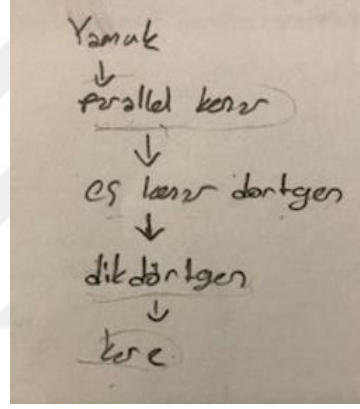 Yamuk
↓
parallel kenar
↓
eş kenar dörtgen
↓
dikdörtgen
↓
kare